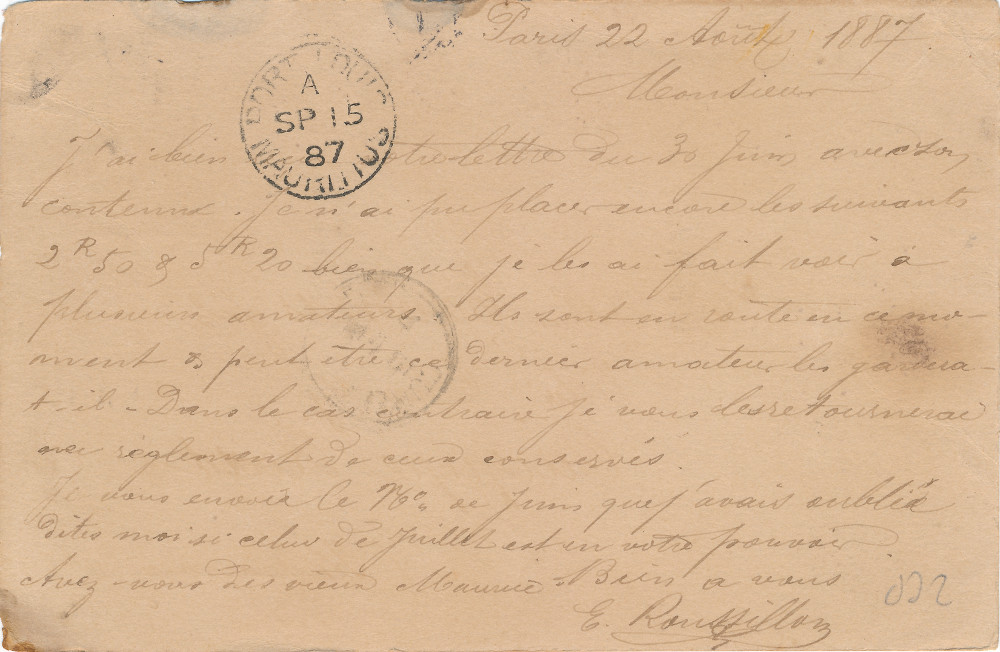 Paris 22 Août 1887
Monsieur
PORT LOUIS
A
SP 15
87
MAURITIUS
J'ai bien votre lettre du 30 Juin avec son
contenu. Je n'ai pu placer encore les suivants
2R 50 & 5R 20 bien que je les ai fait voir à
plusieurs amateurs. Ils sont en route en ce mo-
ment & peut être ce dernier amateur les gardera-
t-il - Dans le cas contraire je vous les retournerai
règlement de ceux conservés.
Je vous envoie le No de Juin que j'avais oublié
dites moi si celui de Juillet est en votre pouvoir.
Avez-vous des vieux Maurice - Bien a vous
E. Roussillon